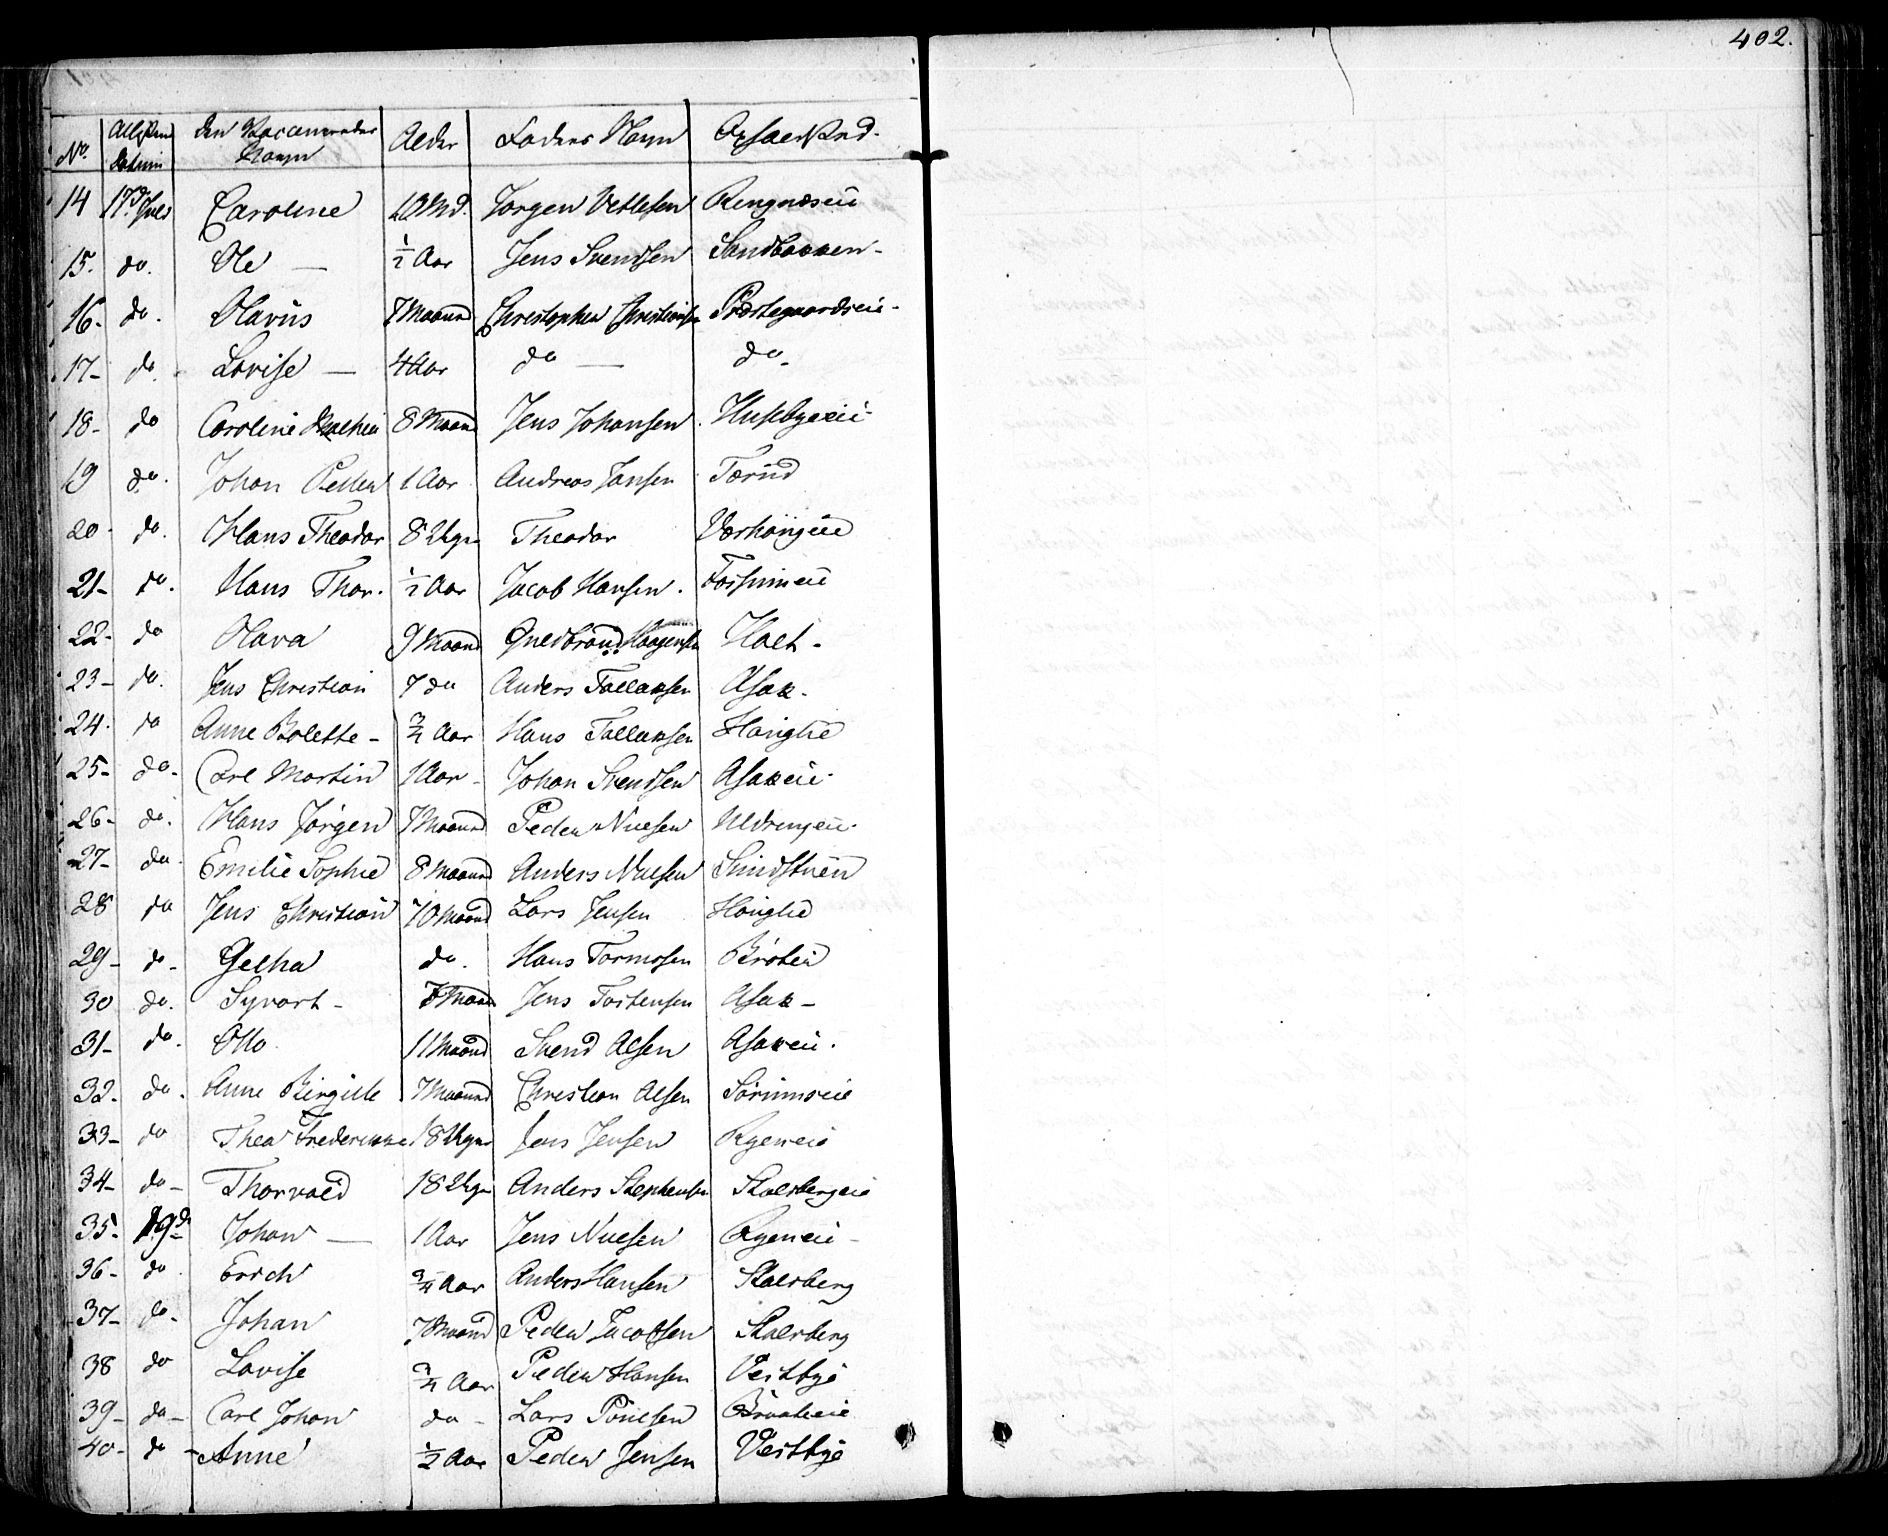 402.
No. Attesten Datum den Vaccineredes Navn Alder Faders Navn Opholdsted.
14 17d Juli Caroline 10 Md. Jørgen Vetlesen Rengnæseie
15. do. Ole — ½ Aar Jens Svendsen Sandbakken -
16- do. Olavus 7 Maaned Christopher Christians Præstegaardseie -
17- do. Lovise — 4 Aar do — do -
18- do Caroline Mathia 8 Maan Jens Johansen Husebyeeie
19 do. Johan Petter 1 Aar Andreas Jansen Tærud
20- do. Hans Theodor 8 Uger Theodor
21- do. Hans Thor. ½ Aar Jacob Hansen.
22- do Olava 9 Maaned Guldbrand Haagensen Holt -
23- do. Jens Christian 7 do Anders Tollaksen Asak -
24. do Anne Bolette - ¾ Aar Hans Tollaksen Hauglie
25- do- Carl Martin 1 Aar - Johan Svendsen Asakeie -
26- do. Hans Jørgen 7 Maaned Peder Nielsen
27- do. Emilie Sophie 8 Maaned Anders Nielsen Smidstuen
28 do Jens Christian 10 Maaned Lars Jensen Hauglie
29- do- Gelha do. Hans Tormosen Bråtein
30 do. Syvart - 7 Maan Jens Tostensen Asak -
31- do. Otto 11 Maaned Svend Olsen Asakeie.
32. do. Anne Birgitte 7 Maaned Christian Olsen Sørumseie
33- do Thea Frederikke 18 Uger Jens Jensen Rygeneie
34- do- Thorvald 18 Uger Anders Stephensen Stalsbergeie
35- 19d- Johan — 1 Aar Jens Nielsen Rygeneie -
36- do Erich ¾ Aar Anders Hansen Stalsberg
37- do- Johan 7 Maaned Peder Jacobsen Stalsberg
38 do Lovise ¾ Aar Peder Hansen Vestbye
39- do- Carl Johan do - Lars Poulsen Braateeie
40- do - Anne ½ Aar Peder Jensen Vestbye